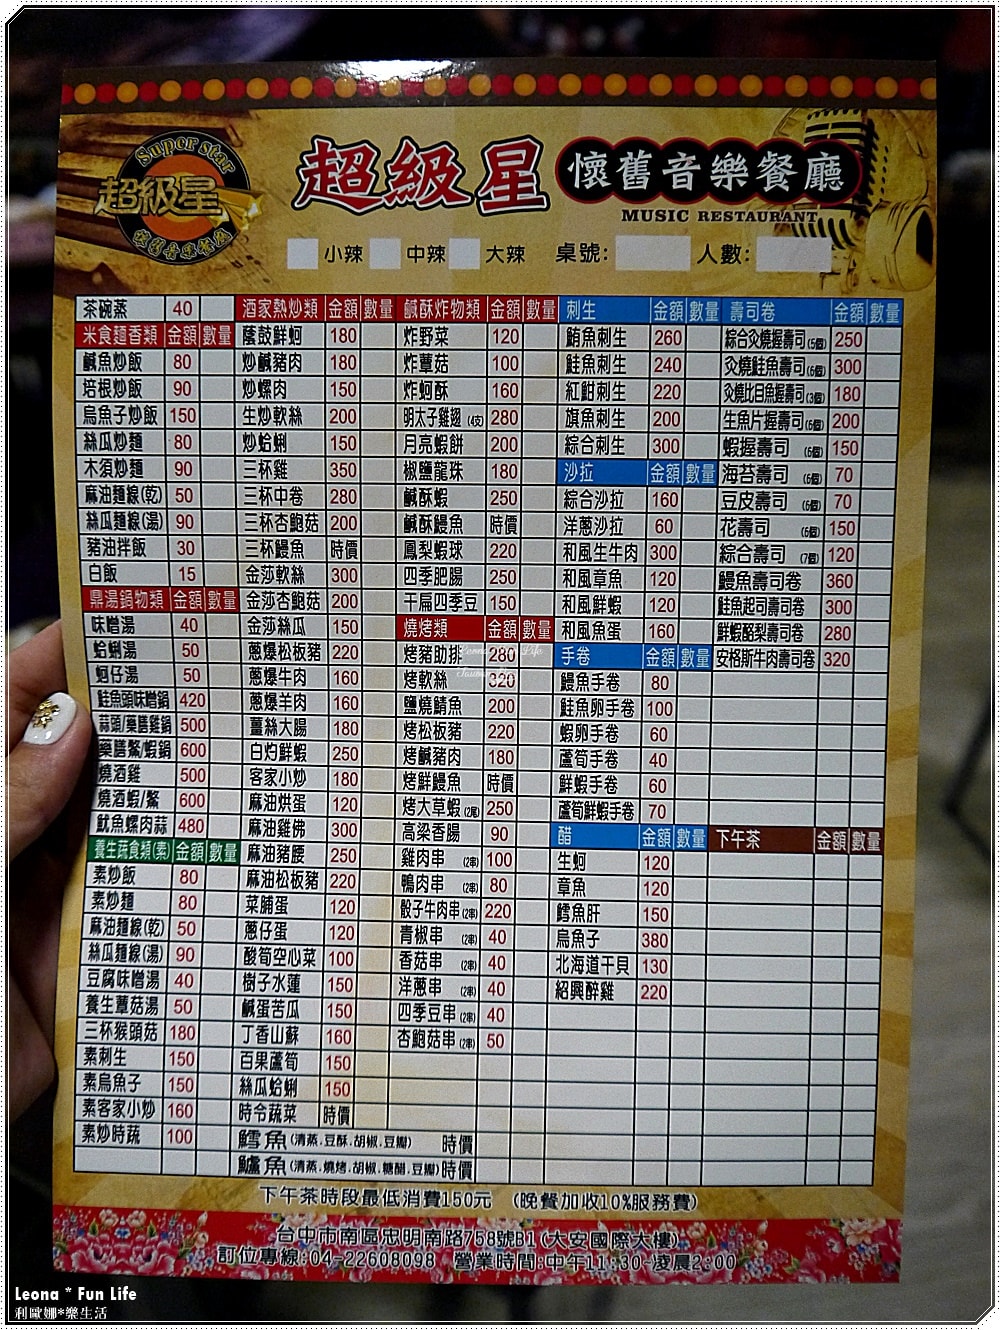 Super star
超級星
超級星
懷舊音樂餐廳
MUSIC RESTAURANT
小辣 中辣 大辣 桌號: 人數:
茶碗蒸 40
米食麵香類 金額 數量
鹹魚炒飯 80
培根炒飯 90
烏魚子炒飯 150
絲瓜炒麵 80
木須炒麵 90
麻油麵線(乾) 50
絲瓜麵線(湯) 90
豬油拌飯 30
白飯 15
鼎湯鍋物類 金額 數量
味噌湯 40
蛤蜊湯 50
蚵仔湯 50
鮭魚頭味噌鍋 420
蒜頭/藥膳雞鍋 500
藥膳鱉/蝦鍋 600
燒酒雞 500
燒酒蝦/鱉 600
魷魚螺肉蒜 480
養生蔬食類(素) 金額 數量
素炒飯 80
素炒麵 80
麻油麵線(乾) 50
絲瓜麵線(湯) 90
豆腐味噌湯 40
養生蕈菇湯 50
三杯猴頭菇 180
素刺生 150
素烏魚子 150
素客家小炒 160
素炒時蔬 100
酒家熱炒類 金額 數量
蔭鼓鮮蚵 180
炒鹹豬肉 180
炒螺肉 150
生炒軟絲 200
炒蛤蜊 150
三杯雞 350
三杯中卷 280
三杯杏鮑菇 200
三杯鰻魚 時價
金莎軟絲 300
金莎杏鮑菇 200
金莎絲瓜 150
蔥爆松板豬 220
蔥爆牛肉 160
蔥爆羊肉 160
薑絲大腸 180
白灼鮮蝦 250
客家小炒 180
麻油烘蛋 120
麻油雞佛 300
麻油豬腰 250
麻油松板豬 220
菜脯蛋 120
蔥仔蛋 120
酸筍空心菜 100
樹子水蓮 150
鹹蛋苦瓜 150
丁香山蘇 160
百果蘆筍 150
絲瓜蛤蜊 150
時令蔬菜 時價
鱈魚(清蒸.豆酥.胡椒.豆瓣) 時價
鱸魚(清蒸.燒烤.胡椒.糖醋.豆瓣) 時價
鹹酥炸物類 金額 數量
炸野菜 120
炸蕈菇 100
炸蚵酥 160
明太子雞翅(4支) 280
月亮蝦餅 200
椒鹽龍珠 180
鹹酥蝦 250
鹹酥鰻魚 時價
鳳梨蝦球 220
四季肥腸 250
干扁四季豆 150
燒烤類 金額 數量
烤豬肋排 280
烤軟絲 320
鹽燒鯖魚 200
烤松板豬 220
烤鹹豬肉 180
烤鮮鰻魚 時價
烤大草蝦(2尾) 250
高梁香腸 90
雞肉串(2串) 100
鴨肉串(2串) 80
骰子牛肉串(2串) 220
青椒串(2串) 40
香菇串(2串) 40
洋蔥串(2串) 40
四季豆串(2串) 40
杏鮑菇串(2串) 50
刺生 金額 數量
鮪魚刺生 260
鮭魚刺生 240
紅魽刺生 220
旗魚刺生 200
綜合刺生 300
沙拉 金額 數量
綜合沙拉 160
洋蔥沙拉 60
和風生牛肉 300
和風章魚 120
和風鮮蝦 120
和風魚蛋 160
手卷 金額 數量
鰻魚手卷 80
鮭魚卵手卷 100
蝦卵手卷 60
蘆筍手卷 40
鮮蝦手卷 60
蘆筍鮮蝦手卷 70
醋 金額 數量
生蚵 120
章魚 120
鱈魚肝 150
烏魚子 380
北海道干貝 130
紹興醉雞 220
壽司卷 金額 數量
綜合炙燒握壽司(5個) 250
炙燒鮭魚壽司(6個) 300
炙燒比目魚握壽司(3個) 180
生魚片握壽司(6個) 200
蝦握壽司(6個) 150
海苔壽司(6個) 70
豆皮壽司(6個) 70
花壽司(6個) 150
綜合壽司(7個) 120
鰻魚壽司卷 360
鮭魚起司壽司卷 300
鮮蝦酪梨壽司卷 280
安格斯牛肉壽司卷 320
下午茶 金額 數量
下午茶時段最低消費150元 (晚餐加收10%服務費)
台中市南區忠明南路758號B1(大安國際大樓)
訂位專線:04-22608098 營業時間:中午11:30~凌晨2:00
Leona * Fun Life
利歐娜*樂生活